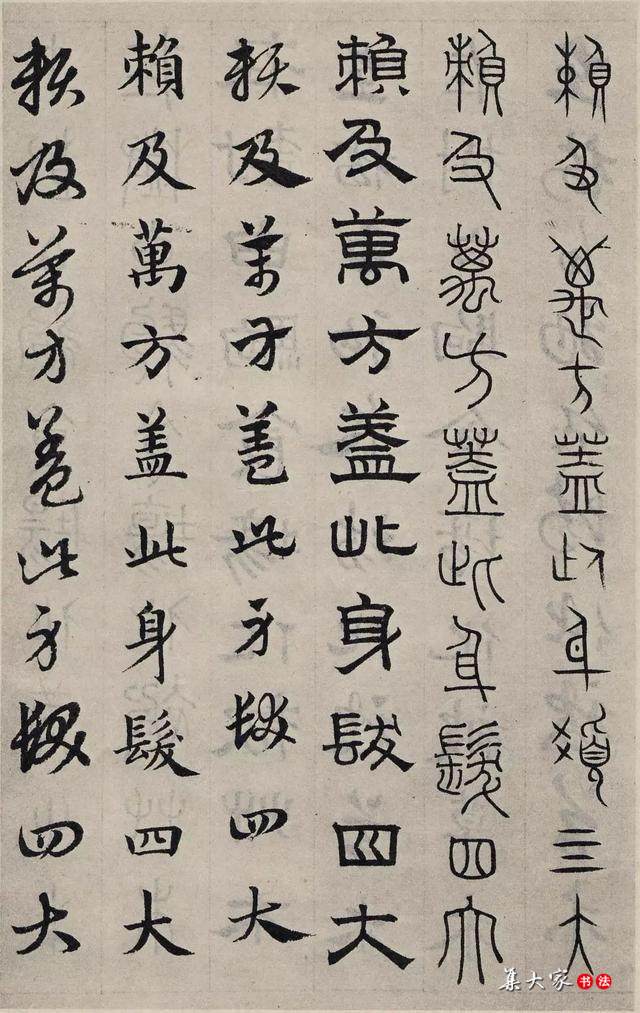 賴及萬方蓋此身髮四大
賴及萬方蓋此身髮四大
賴及萬方蓋此身髮四大
賴及萬方蓋此身髮四大
賴及萬方盖此身髮四大
賴及萬方蓋此身髮四大
集大家书法